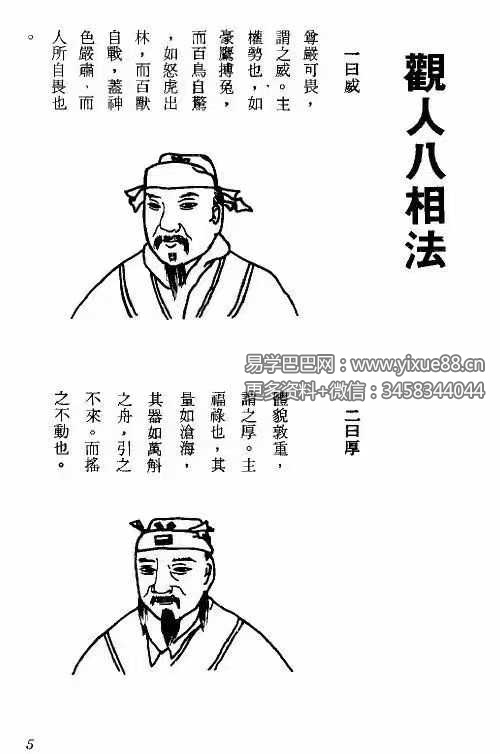 觀人八相法
一曰威
尊嚴可畏，
謂之威。主
權勢也，如
豪鷹搏兔，
而百鳥自驚
，如怒虎出
林，而百獸
自戰，蓋神
色嚴肅、而
人所自畏也
。
易学巴巴网：www.yixue88.cn
更多资料+微信：3458344044
二曰厚
體貌敦重，
謂之厚。主
福祿也，其
量如滄海，
其器如萬斛
之舟，引之
不來。而搖
之不動也。
5